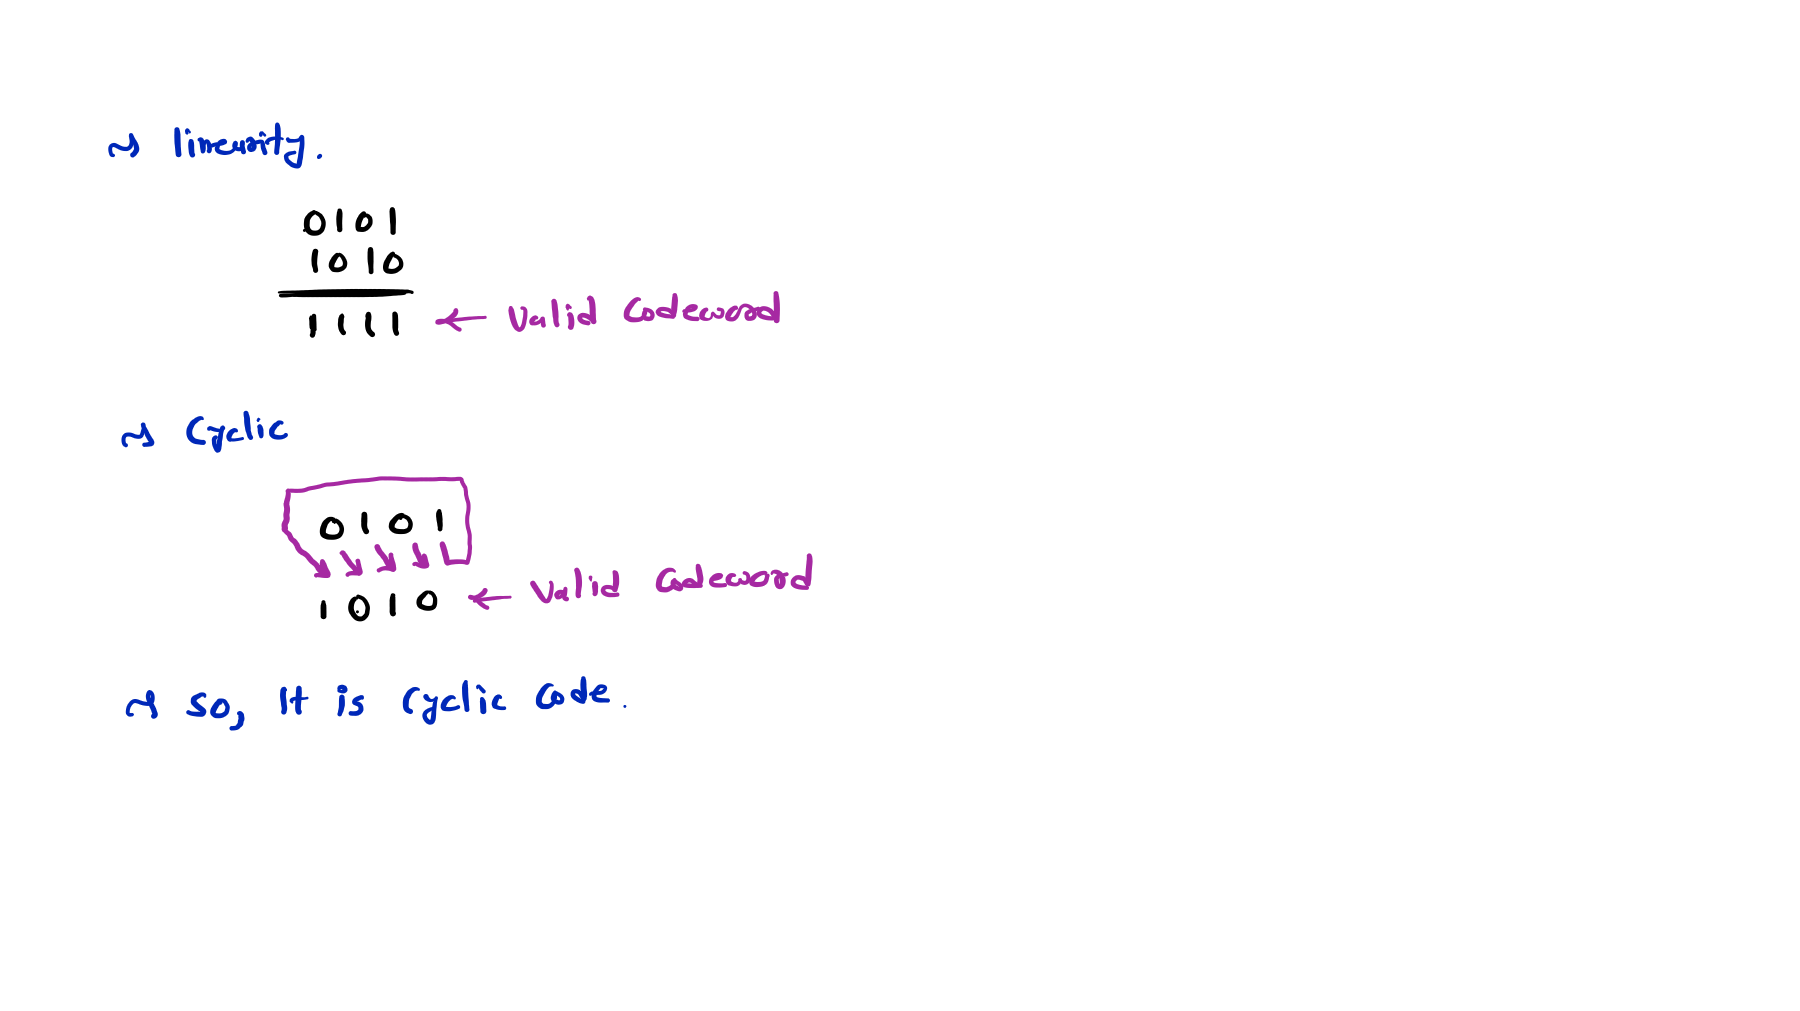 ~> linearity.
0101
1010
1111 ← Valid Codeword
~> Cyclic
0101
1010 ← Valid Codeword
~> So, It is Cyclic Code.